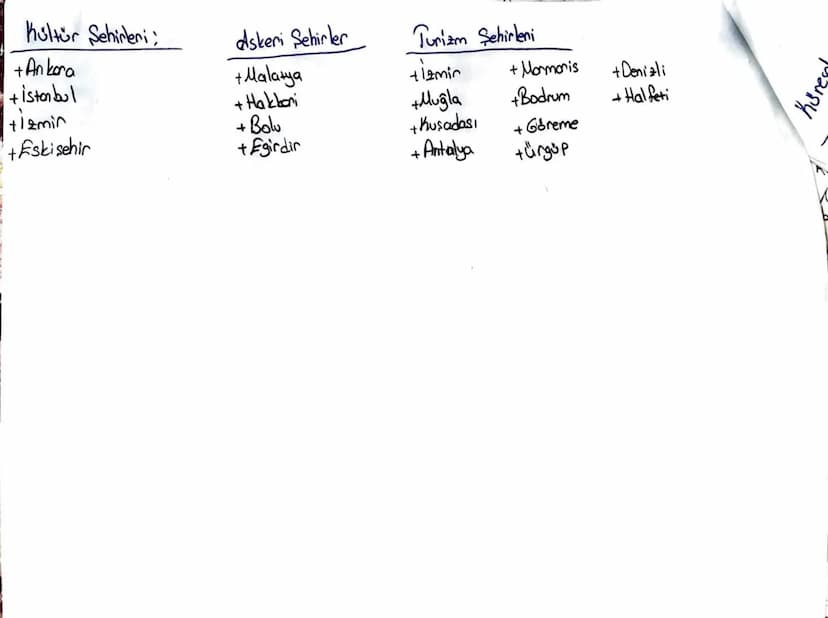 Kültür Şehirleri:
+Ankara
+İstanbul
+İzmir
+Eskişehir
Askeri Şehirler
+Malatya
+Hakkari
+Bolu
+Egirdir
Turizm Şehirleri
+İzmir
+Muğla
+Kuşadası
+Antalya
+Marmaris
+Bodrum
+Göreme
+Ürgüp
+Denizli
+Halfeti
Küresel